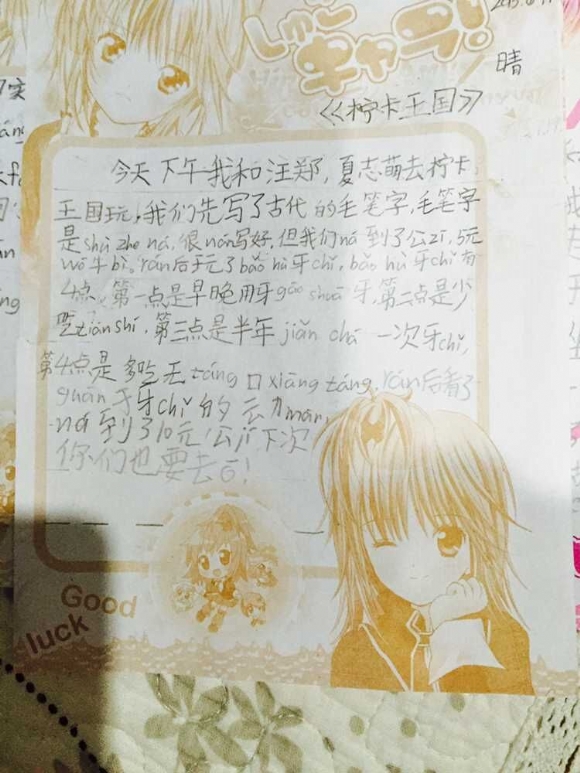 しゅごキャラ!
晴
《柠卡王国》
今天下午我和汪郑,夏志萌去柠卡
王国玩,我们先写了古代的毛笔字,毛笔字
是shù zhe ná,很nán写好,但我们ná到了公zī,5元
wō牛bì,rán后玩了bǎo hù牙chǐ,bǎo hù牙chǐ有
4点,第一点是早晚用牙gāo shuā牙,第二点是少
吃tián shí,第三点是半年jiǎn chá一次牙chǐ,
第4点是多吃无táng口xiāng táng,rán后看了
guān于牙chǐ的动màn,
ná到了10元公zī下次
你们也要去ō!
Good
luck